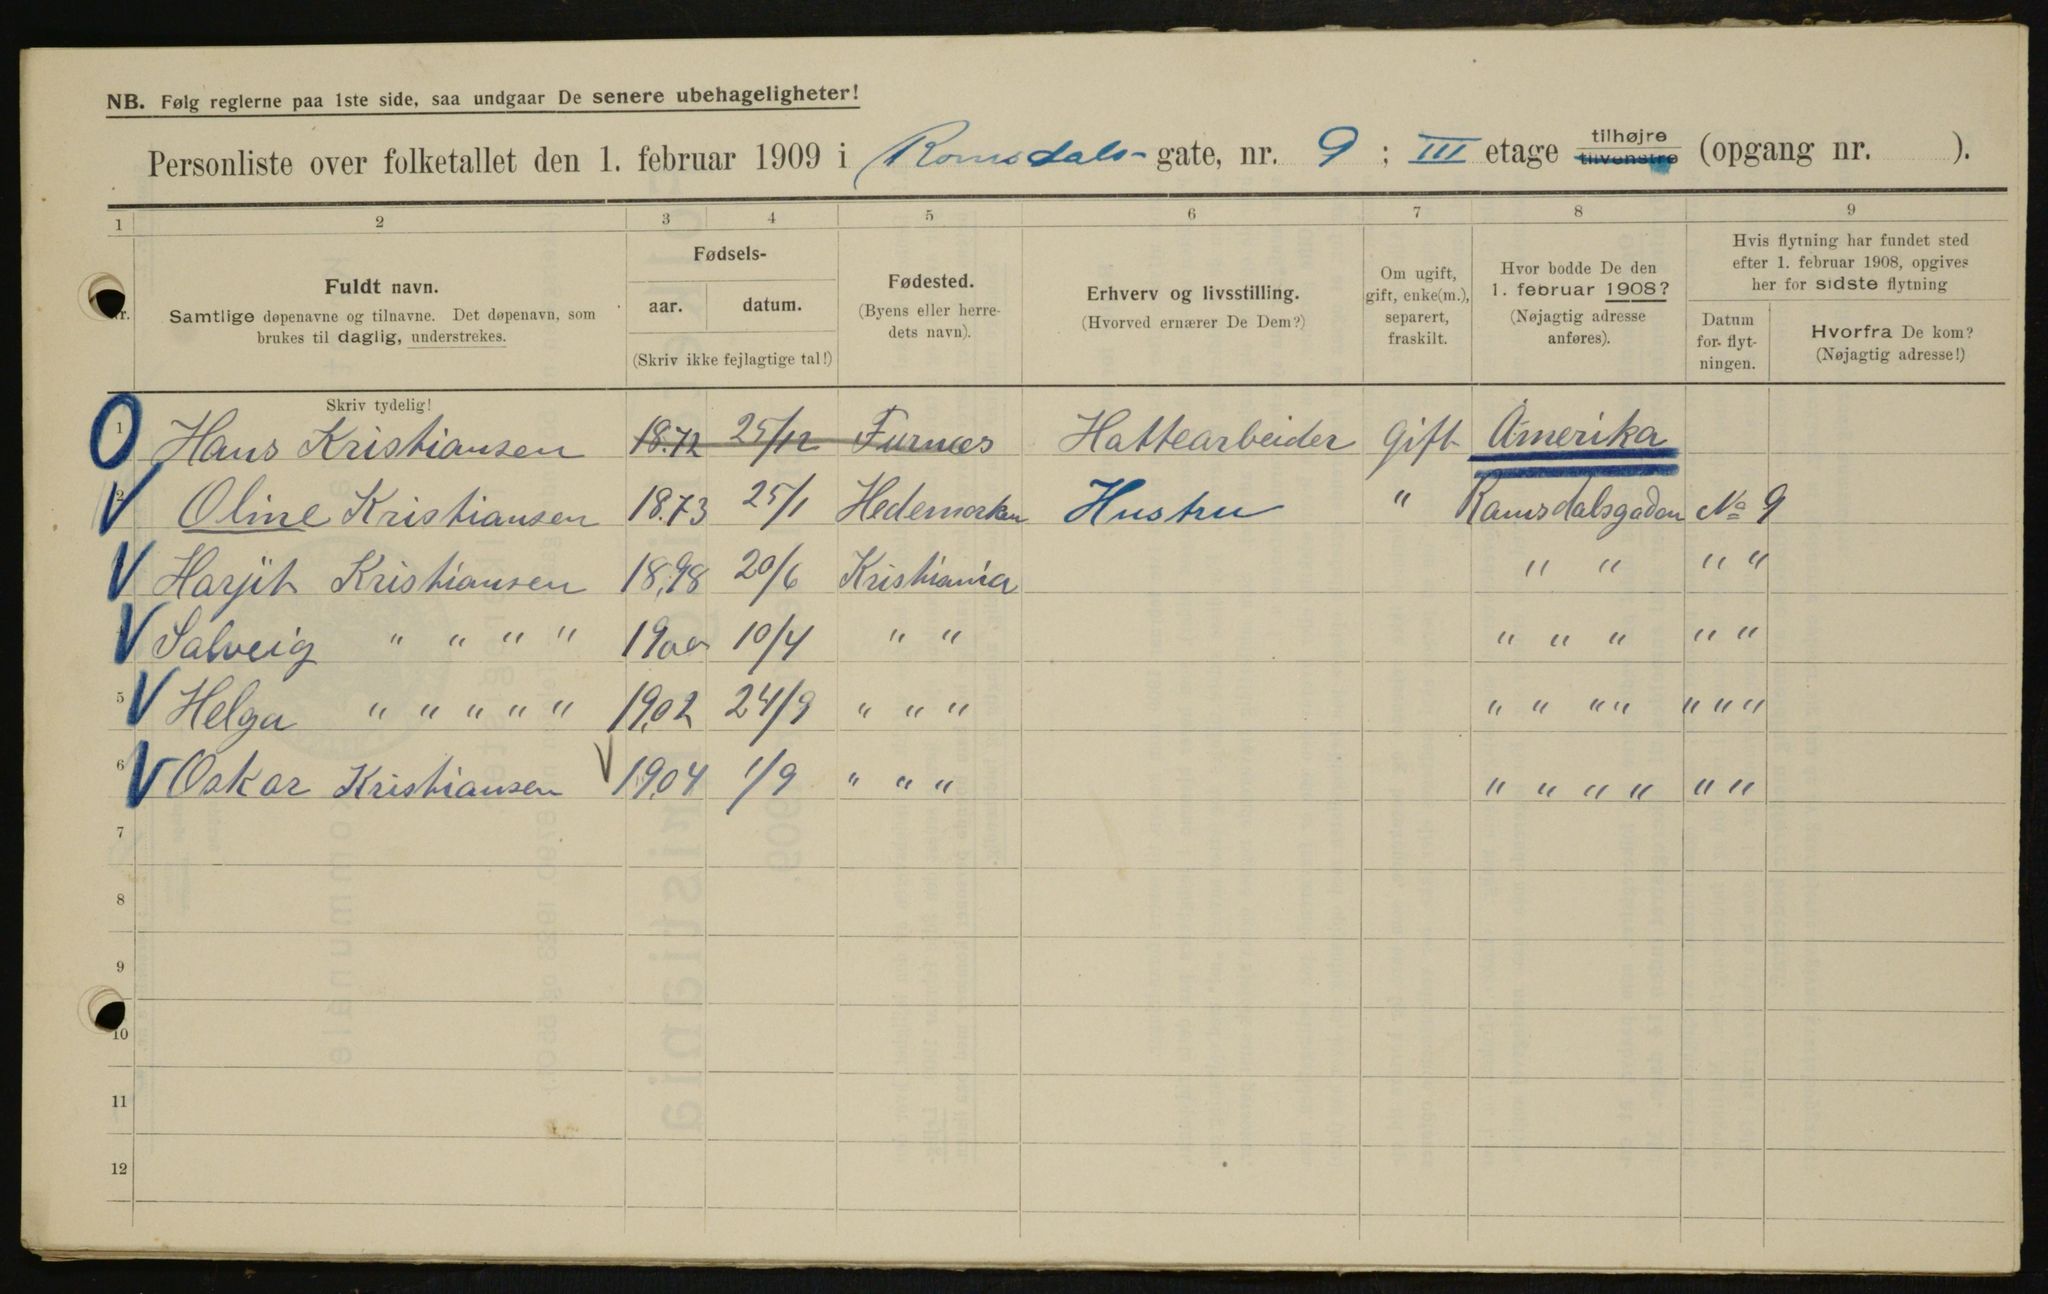 NB. Følg reglerne paa 1ste side, saa undgaar De senere ubehageligheter!
Personliste over folketallet den 1. februar 1909 i Romsdals-gate, nr. 9; III etage tilhøjre tilvenstre (opgang nr. ).
1 2 3 4 5 6 7 8 9
Nr.
Fuldt navn.
Samtlige døpenavne og tilnavne. Det døpenavn, som
brukes til daglig, understrekes.
Fødsels-
aar. datum.
(Skriv ikke fejlagtige tal!)
Fødested.
(Byens eller herre-
dets navn).
Erhverv og livsstilling.
(Hvorved ernærer De Dem?)
Om ugift,
gift, enke(m.),
separert,
fraskilt.
Hvor bodde De den
1. februar 1908?
(Nøjagtig adresse
anføres).
Hvis flytning har fundet sted
efter 1. februar 1908, opgives
her for sidste flytning
Datum
for flyt-
ningen.
Hvorfra De kom?
(Nøjagtig adresse!)
Skriv tydelig!
1 Hans Kristiansen 1872 25/12 Furnæs Hattearbeider Gift Amerika
2 Oline Kristiansen 1873 25/1 Hedemarken Hustru " Ramsdalsgaden No 9
Harjit Kristiansen 1898 20/6 Kristiania " " " "
Salveig " " " " 1900 10/4 " " " " " " "
5 Helga " " " " " 1902 24/9 " " " " " " " " " "
6 Oskar Kristiansen 1904 1/9 " " " " " " " " "
7
8
9
10
11
12